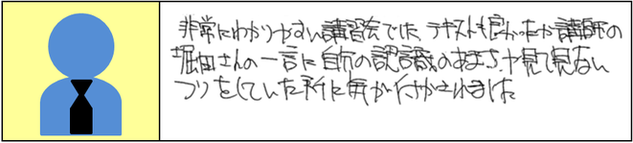 非常にわかりやすい講習会でした。テキストも良かったが講師の
堀田さんの一言に自分の認識のあまさ、や見て見ない
フリをしていた所に気が付かされました